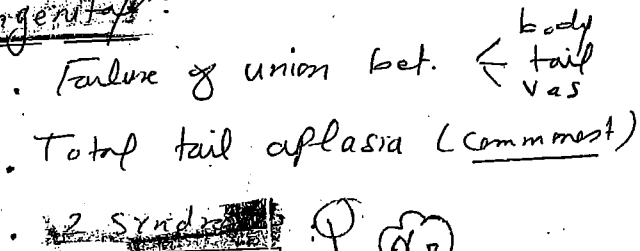 . Failure of union bet. < body
tail
vas
. Total tail aplasia (commonest)
. 2 Synd